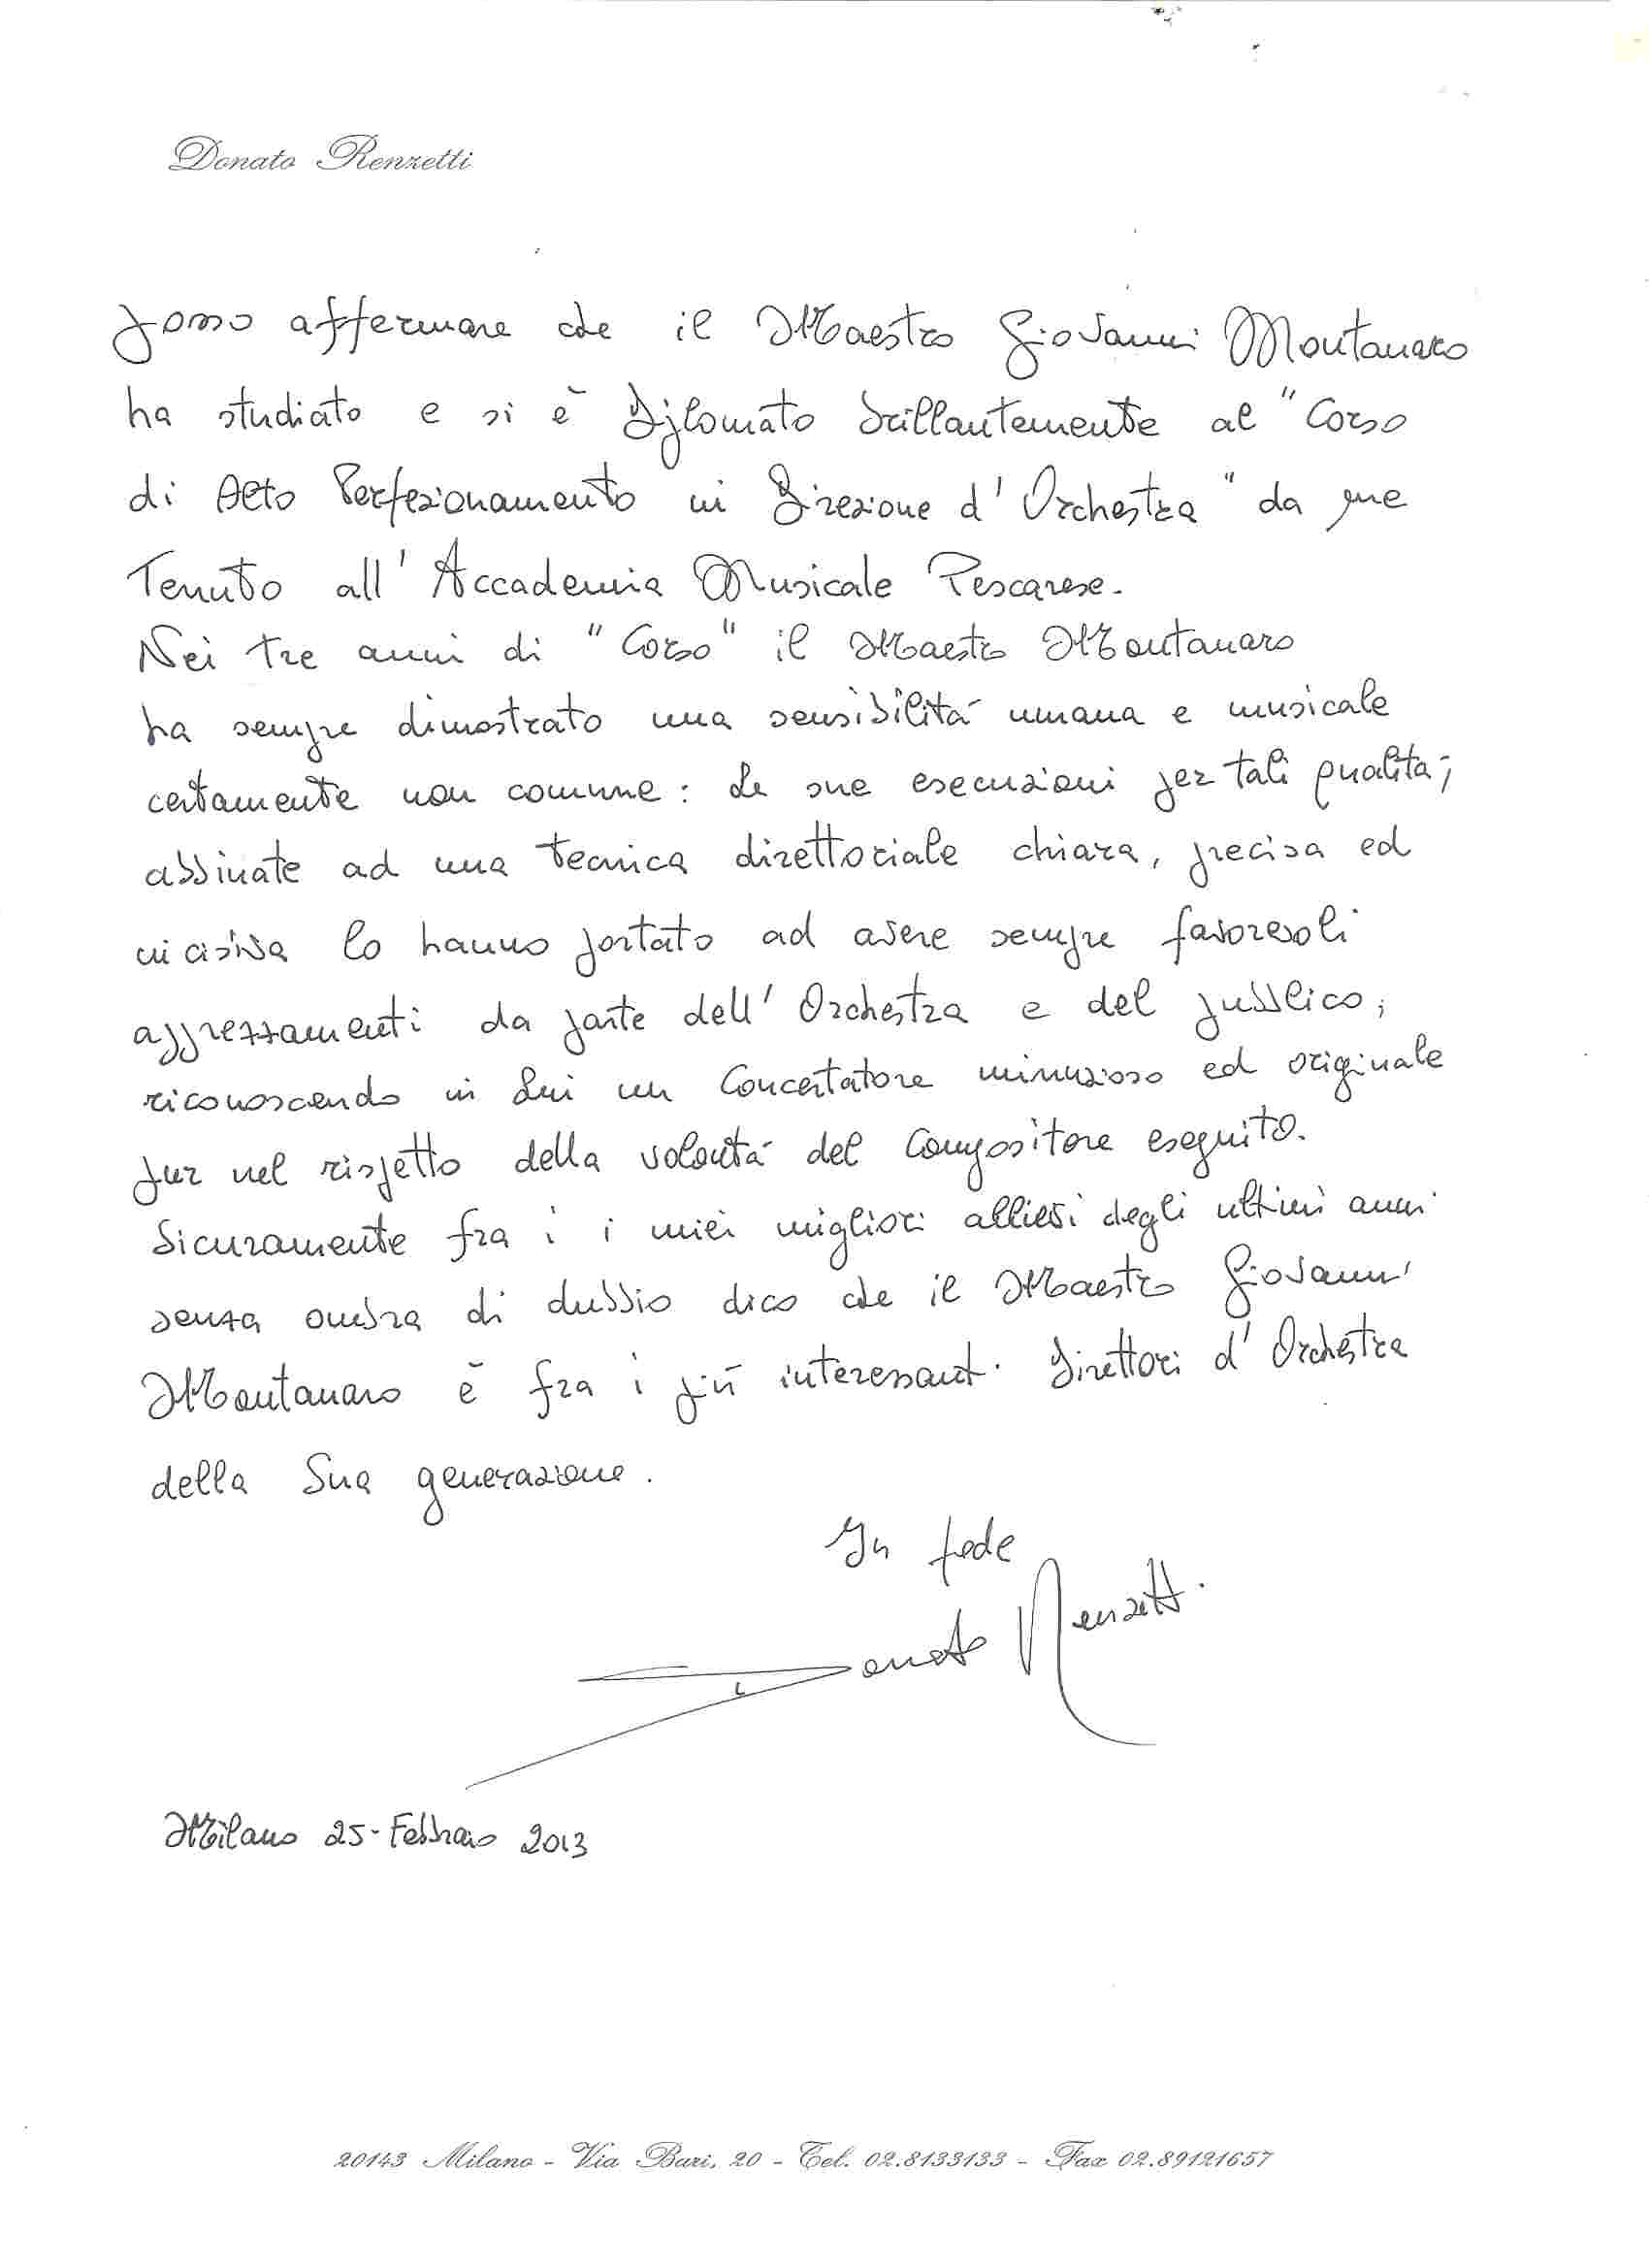 Donato Renzetti
Posso affermare che il Maestro Giovanni Montanaro
ha studiato e si è Diplomato brillantemente al "Corso
di Alto Perfezionamento in Direzione d'Orchestra" da me
Tenuto all'Accademia Musicale Pescarese.
Nei tre anni di "Corso" il Maestro Montanaro
ha sempre dimostrato una sensibilità umana e musicale
certamente non comune: Le sue esecuzioni per tali qualità,
abbinate ad una tecnica direttoriale chiara, precisa ed
incisiva lo hanno portato ad avere sempre favorevoli
apprezzamenti da parte dell'Orchestra e del pubblico,
riconoscendo in Lui un Concertatore minuzioso ed originale
pur nel rispetto della volontà del Compositore eseguito.
Sicuramente fra i i miei migliori allievi degli ultimi anni
senza ombra di dubbio dico che il Maestro Giovanni
Montanaro è fra i più interessanti Direttori d'Orchestra
della Sua generazione.
In fede
Donato Renzetti
Milano 25-Febbraio 2013
20143 Milano - Via Bari, 20 - Tel. 02.8133133 - Fax 02.89121657